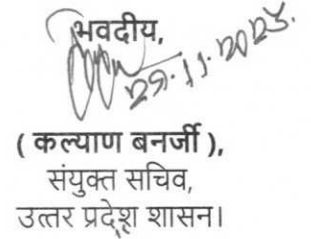 भवदीय,
29.11.2023.
( कल्याण बनर्जी ),
संयुक्त सचिव,
उत्तर प्रदेश शासन।